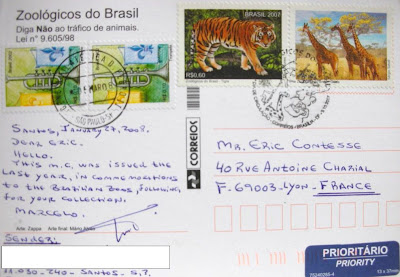 Zoológicos do Brasil
Diga Não ao tráfico de animais.
Lei nº 9.605/98
BRASIL 2007
R$0,60
CORREIOS
Santos, January 27, 2008.
Dear Eric.
Hello.
This M.C. was issued the
last year, in commemorations
to the Brazilian Zoos, following,
for your collection.
Marcelo.
Arte: Zappa Arte final: Mário Alves
Sender:
11.030-240- Santos - S.P.
Mr. Eric Contesse
40 Rue Antoine Charial
F-69003-Lyon- France
75240285-4
10 x 37mm
PRIORITÁRIO
PRIORITY